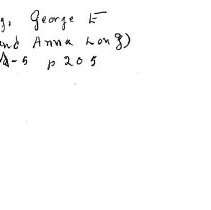 g, George E
and Anna Long)
A-5 p 205